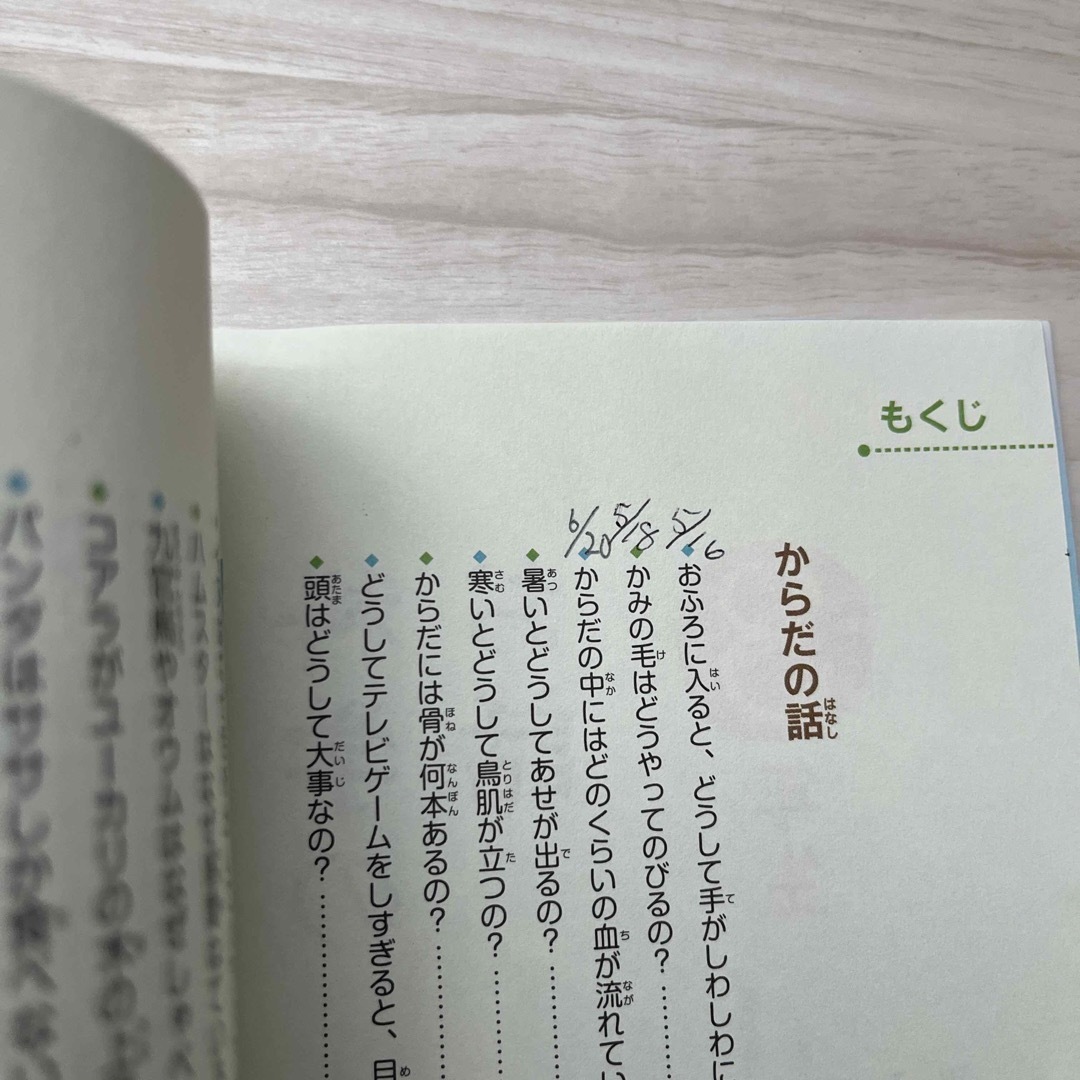 もくじ
からだの話
5/16
おふろに入ると、どうして手がしわしわに
5/18
かみの毛はどうやってのびるの？
6/20
からだの中にはどのくらいの血が流れてい
暑いとどうしてあせが出るの？
寒いとどうして鳥肌が立つの？
からだには骨が何本あるの？
どうしてテレビゲームをしすぎると、目
頭はどうして大事なの？
コアラがユーカリの
パンダはササしか食べな